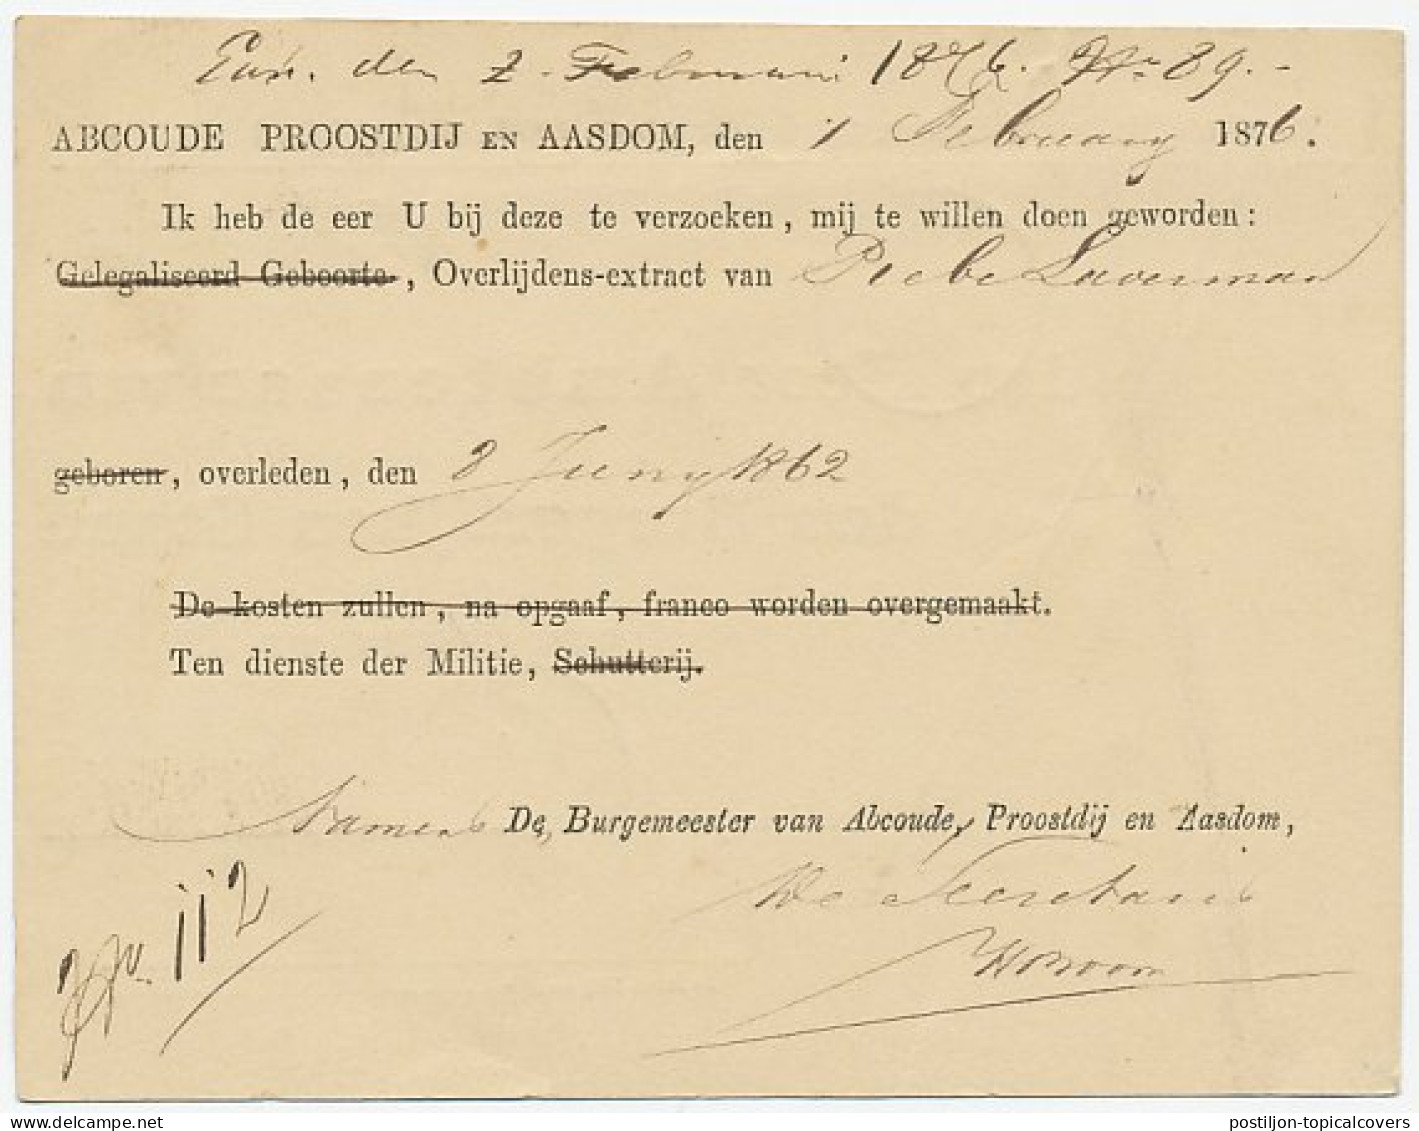 den 2 Februari 1876. Nr 89.-
ABCOUDE PROOSTDIJ EN AASDOM, den 1 February 1876.
Ik heb de eer U bij deze te verzoeken, mij te willen doen geworden:
Gelegaliseerd Geboorte-, Overlijdens-extract van Piebe Laverman
geboren, overleden, den 8 Juny 1862
De kosten zullen, na opgaaf, franco worden overgemaakt.
Ten dienste der Militie, Schutterij.
Namens De Burgemeester van Abcoude, Proostdij en Aasdom,
De Secretaris
No. 112
postiljon-topicalcovers